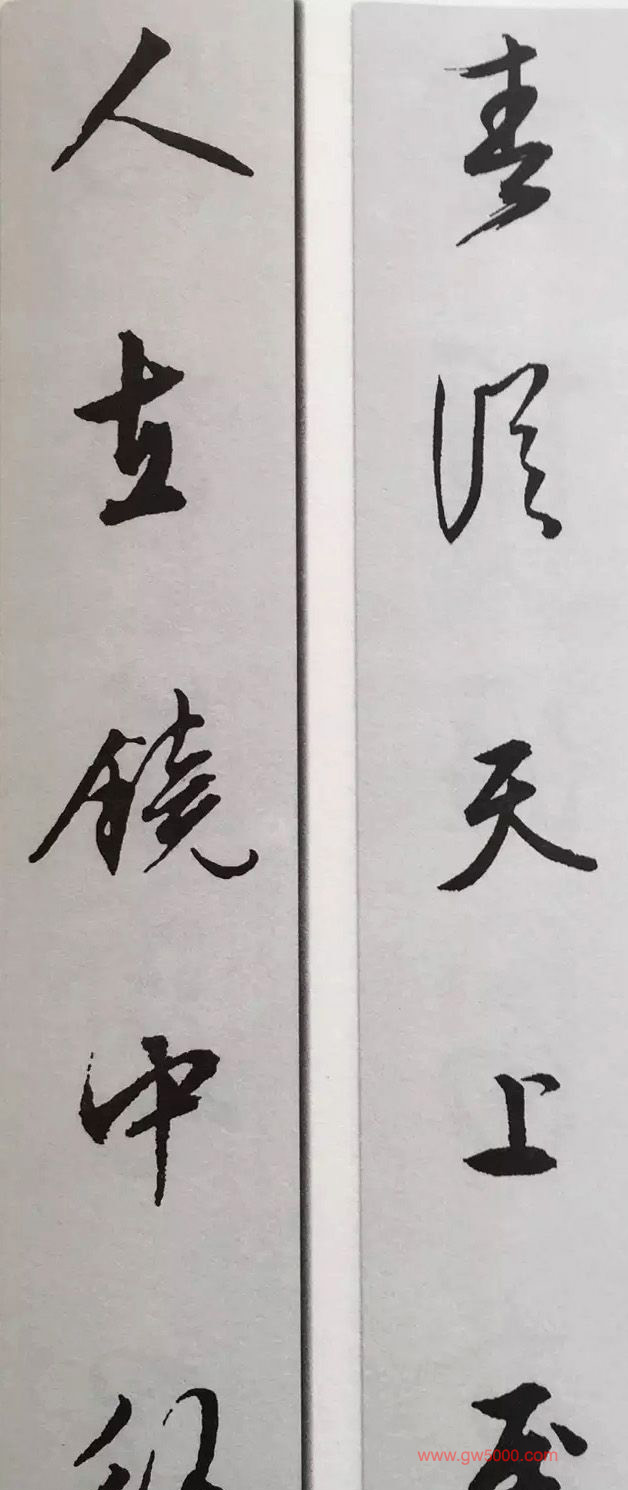 春從天上
人在鏡中
www.gw5000.com